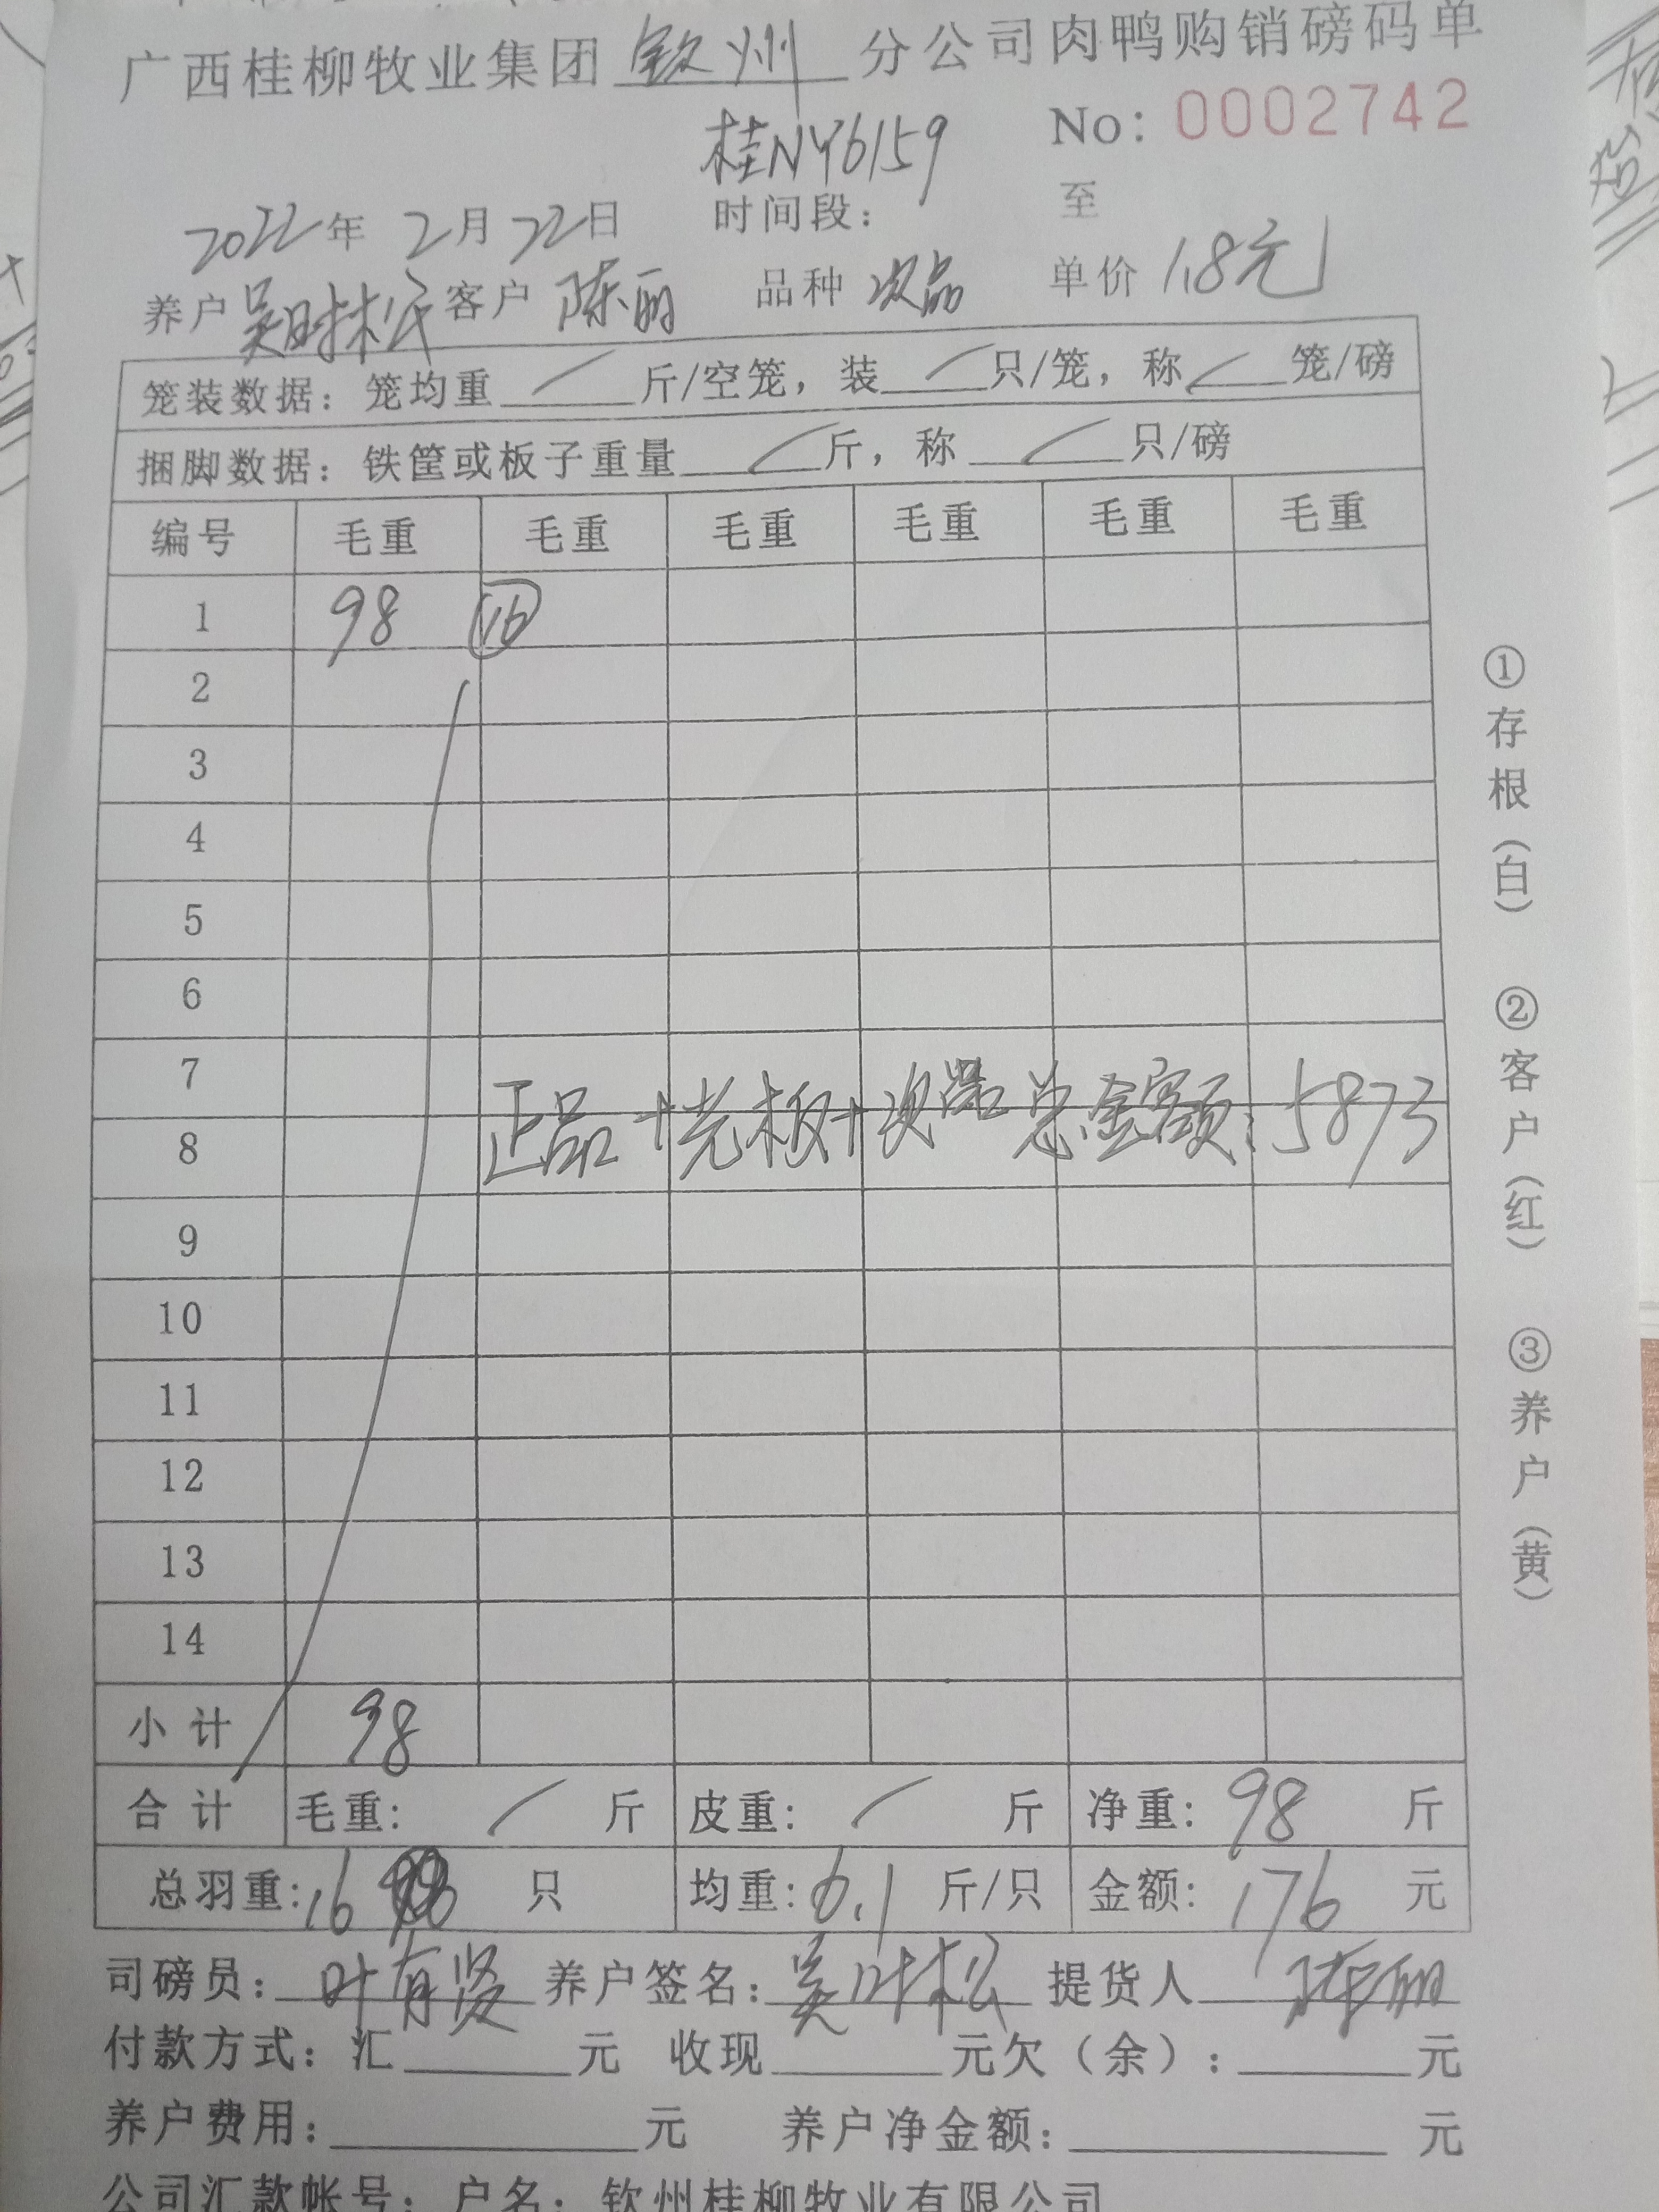 广西桂柳牧业集团 钦州 分公司肉鸭购销磅码单
桂NY6159 No: 0002742
2022年 2月 22日 时间段: 至
养户 吴时松 客户 陈丽 品种 次品 单价 1.8元
笼装数据: 笼均重 / 斤/空笼, 装 / 只/笼, 称 / 笼/磅
捆脚数据: 铁筐或板子重量 / 斤, 称 / 只/磅
编号 毛重 毛重 毛重 毛重 毛重 毛重
1 98 16
2
3
4
5
6
7
正品+光板+次品总金额: 5873
8
9
10
11
12
13
14
小计 98
合计 毛重: / 斤 皮重: / 斤 净重: 98 斤
总羽重: 16 只 均重: 6.1 斤/只 金额: 176 元
司磅员: 叶有贤 养户签名: 吴时松 提货人 陈丽
付款方式: 汇 元 收现 元欠(余): 元
养户费用: 元 养户净金额: 元
公司汇款帐号: 户名: 钦州桂柳牧业有限公司
①存根(白) ②客户(红) ③养户(黄)